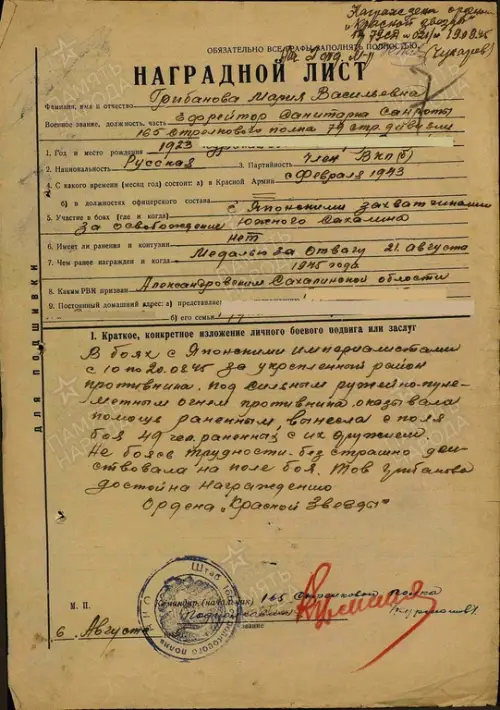 Награждена орденом
"Красной Звезды"
ОБЯЗАТЕЛЬНО ВСЕ ГРАФЫ ЗАПОЛНЯТЬ ПОЛНОСТЬЮ
НАГРАДНОЙ ЛИСТ
Фамилия, имя и отчество Грибанова Мария Васильевна
Военное звание, должность, часть Ефрейтор Санитарка Санроты
165 стрелкового полка 79 стр. дивизии
1. Год и место рождения 1923
2. Национальность Русская 3. Партийность Член ВКП(б)
4. С какого времени (месяц год) состоит: а) в Красной Армии с февраля 1943
б) в должности офицерского состава
5. Участие в боях (где и когда) с Японскими захватчиками
за освобождение Южного Сахалина
6. Имеет ли ранения и контузии нет
7. Чем ранее награжден и когда Медаль "За Отвагу" 21. августа
1945 года
8. Каким РВК призван Александровским Сахалинской области
9. Постоянный домашний адрес: а) представляе
б) его семьи
ДЛЯ ПОДШИВКИ
I. Краткое, конкретное изложение личного боевого подвига или заслуг
В боях с Японскими империалистами
с 10 по 20.08.45 за укрепленный район
противника. под сильным ружейно-пуле-
метным огнем противника, оказывала
помощь раненным, вынесла с поля
боя 49 чел. раненных с их оружием.
Не боясь трудности бесстрашно дей
ствовала на поле боя. Тов Грибанова
достойна награждению
Ордена "Красной Звезды"
М. П.
Командир (начальник) 165 Стрелкового полка
6 Августа
звание